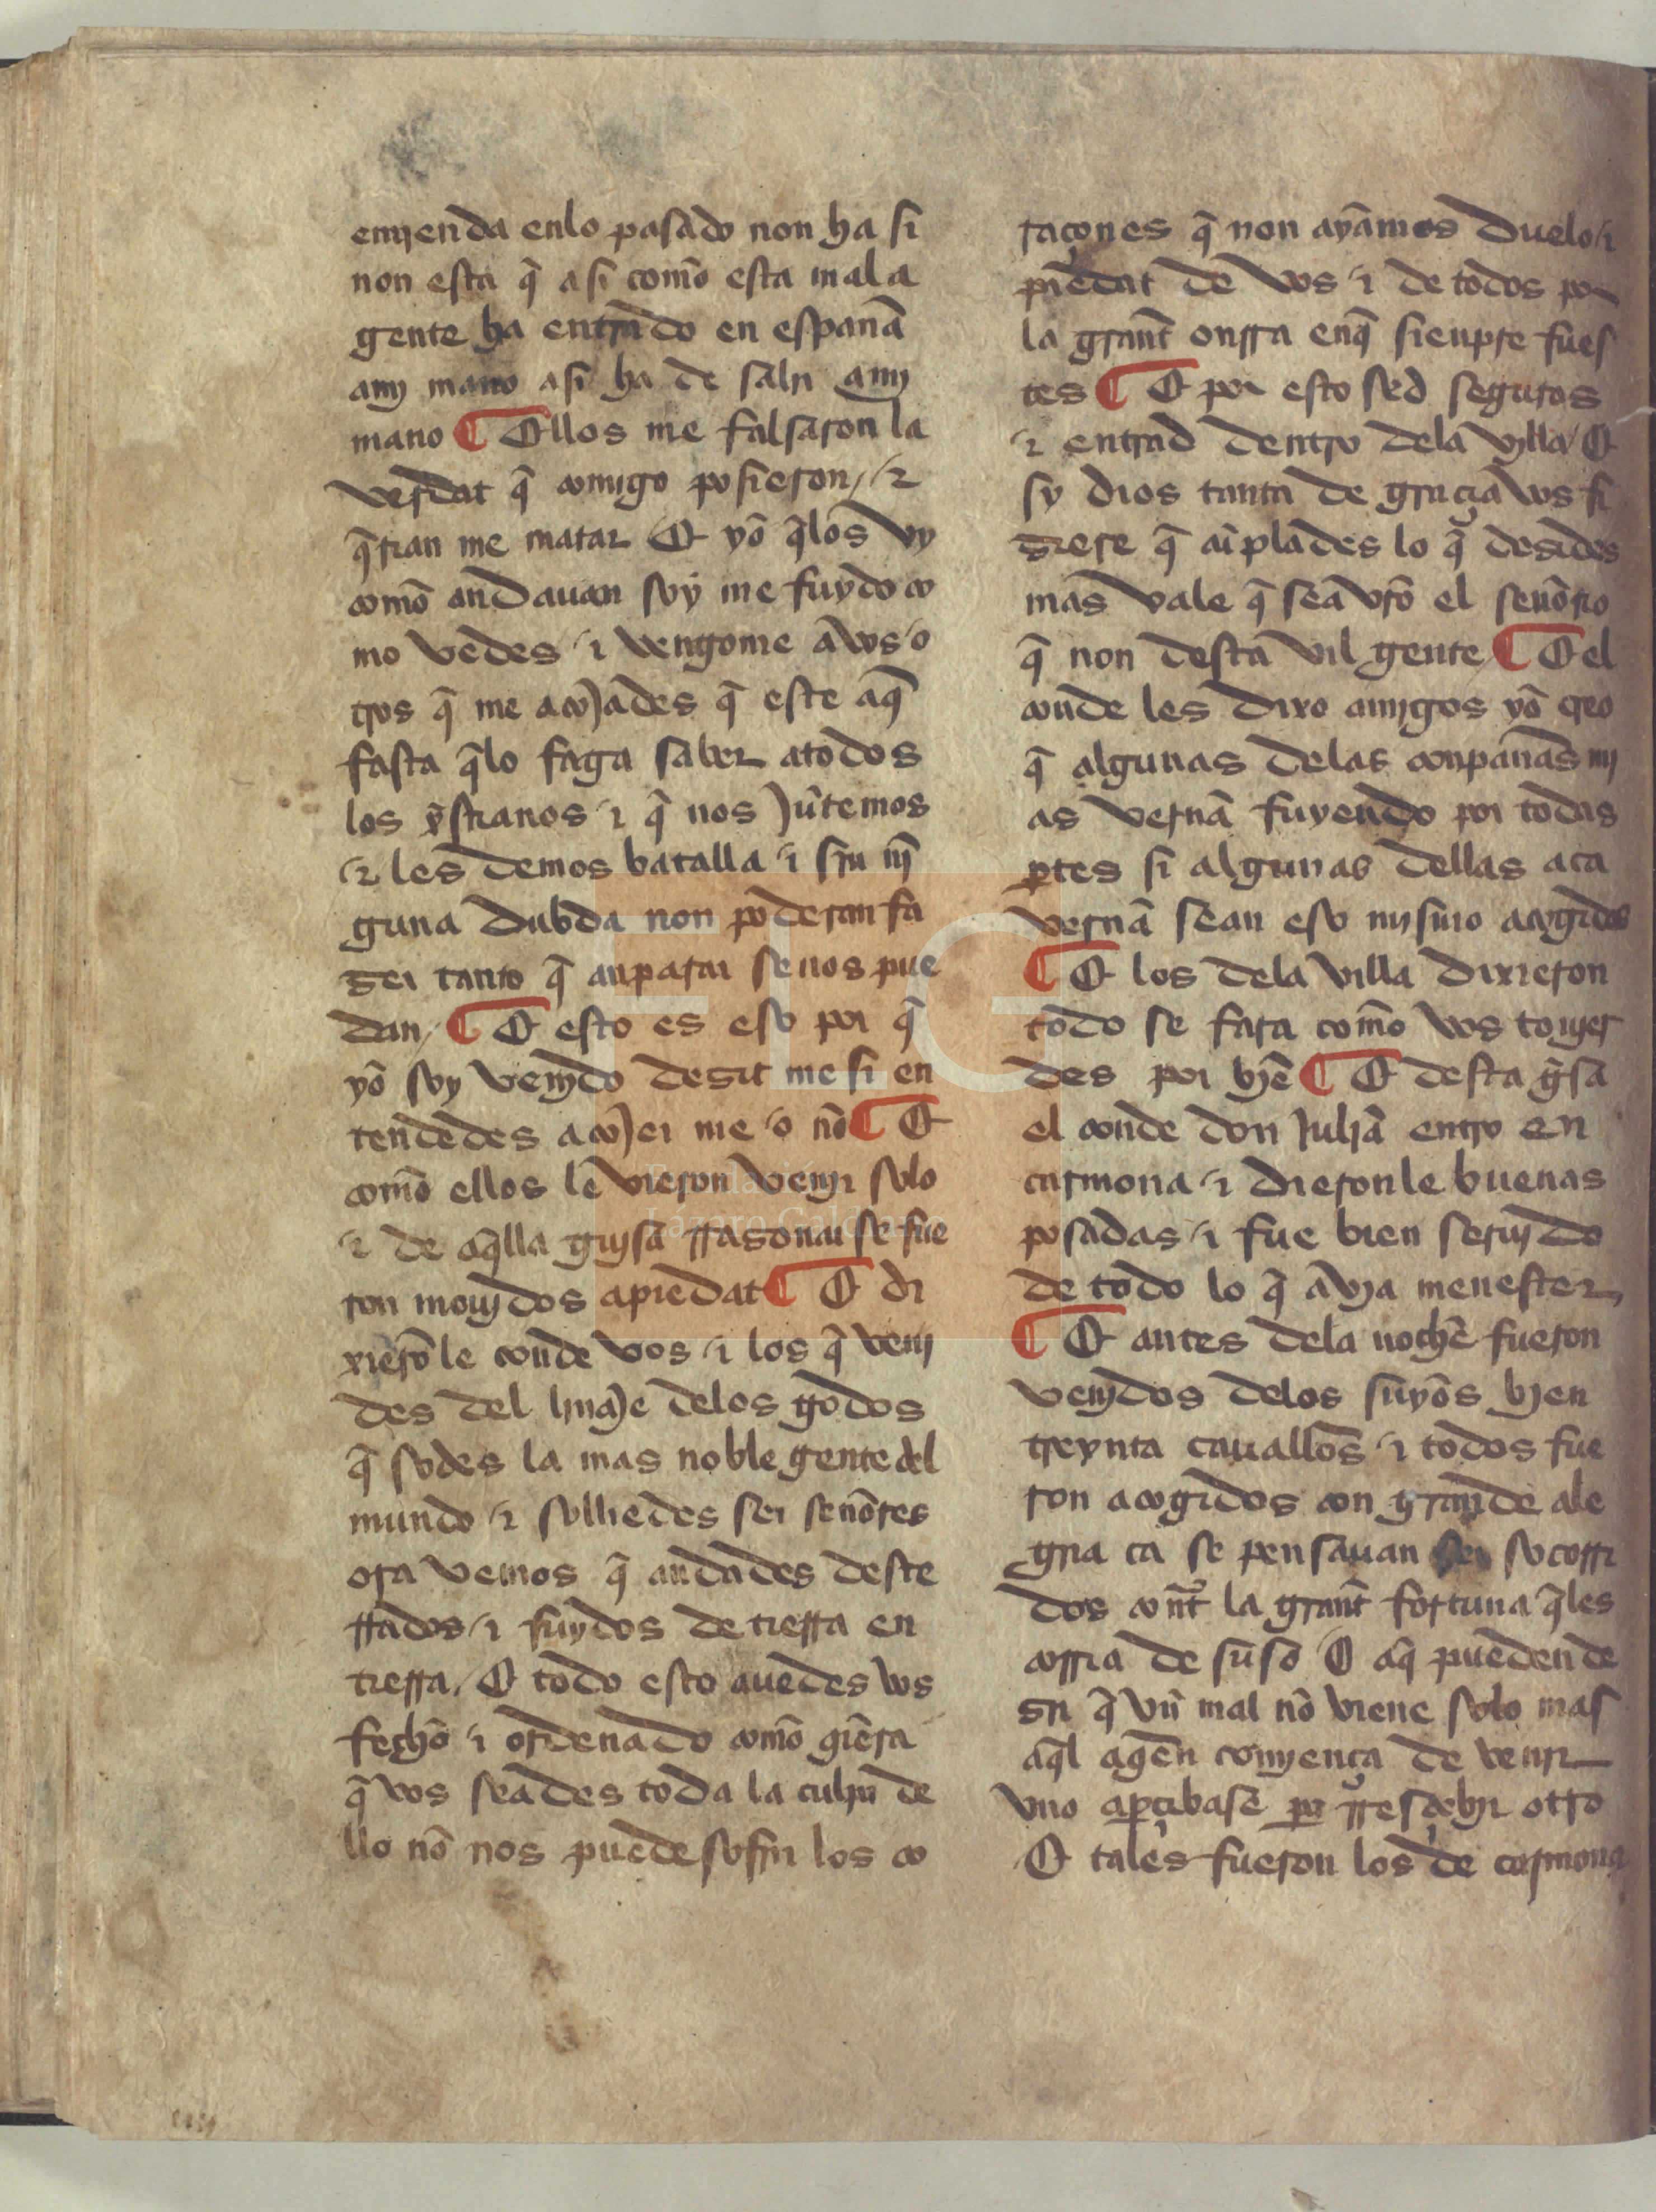 emjenda enlo pasado non ha si
non esta q̃ asi com̃o esta mala
gente ha entrado en espanã
amj mano asi ha de salir amj
mano ¶ Ellos me falsaron la
verdat q̃ comigo posieron / ⁊
q̃rian me matar E yõ q̃los vy
com̃o andauan soy me fuydo co
mo vedes / ⁊ vengome a vos / o
tros q̃ me acojades q̃ este aq̃
fasta q̃lo faga saber atodos
los xp̃stianos / ⁊ q̃ nos jũtemos
/ ⁊ les demos batalla / ⁊ sin nj̃
guna dubda non poderan fa
zer tanto q̃ anparar se nos pue
dan / ¶ E esto es eso por q̃
yõ soy venjdo dezit me si en
tendedes acojer me / o nõ ¶ E
com̃o ellos le vieron venjr solo
/ ⁊ de aq̃lla gujsa rrazonar se fue
ron moujdos apiedat ¶ E di
xierõ le conde vos / ⁊ los q̃ venj
des del linaje delos godos
q̃ sodes la mas noble gente del
mundo / ⁊ soliedes ser senõres
ora vemos q̃ andades deste
rrados / ⁊ fuydos de tierra en
tierra / E todo esto auedes vos
fechõ ⁊ ordenado com̃o q̃era
q̃ vos seades toda la culpa de
llo nõ nos puede sofrir los co
raçones q̃ non ayãmos duelo / ⁊
piedat de vos / ⁊ de todos por
la grant̃ onrra enq̃ sienpre fues
tes ¶ E por esto sed seguros
/ ⁊ entrad dentro dela villa / E
sy dios tanta de graçia vos fi
ziere q̃ cũplades lo q̃ dezides
mas vale q̃ sea vr̃o el senõrio
q̃ non desta vil gente / ¶ E el
conde les dixo amjgos yõ creo
q̃ algunas delas conpanãs mj
as vernã fuyendo por todas
p̱tes si algunas dellas aca
vernã sean eso mismo acogidos
¶ E los dela villa dixieron
todo se fara com̃o vos toujer
des por bjẽ ¶ E desta g̃sa
el conde don juliã entro en
carmona / ⁊ dieronle buenas
posadas / ⁊ fue bien serujdo
de todo lo q̃ avja menester,
¶ E antes dela nochẽ fueron
venjdos delos suyõs bjen
treynta cauallos / ⁊ todos fue
ron acogidos con grande ale
gria ca se pensauan ser socorri
dos cont̃ la grant̃ fortuna q̃les
corria de suso E aq̃ pueden de
zir q̃ vñ mal nõ viene solo mas
aq̃l aq̃en comjença de venir
vno ap̱çibase p̱a rresçebjr otro
E tales fueron los de carmona